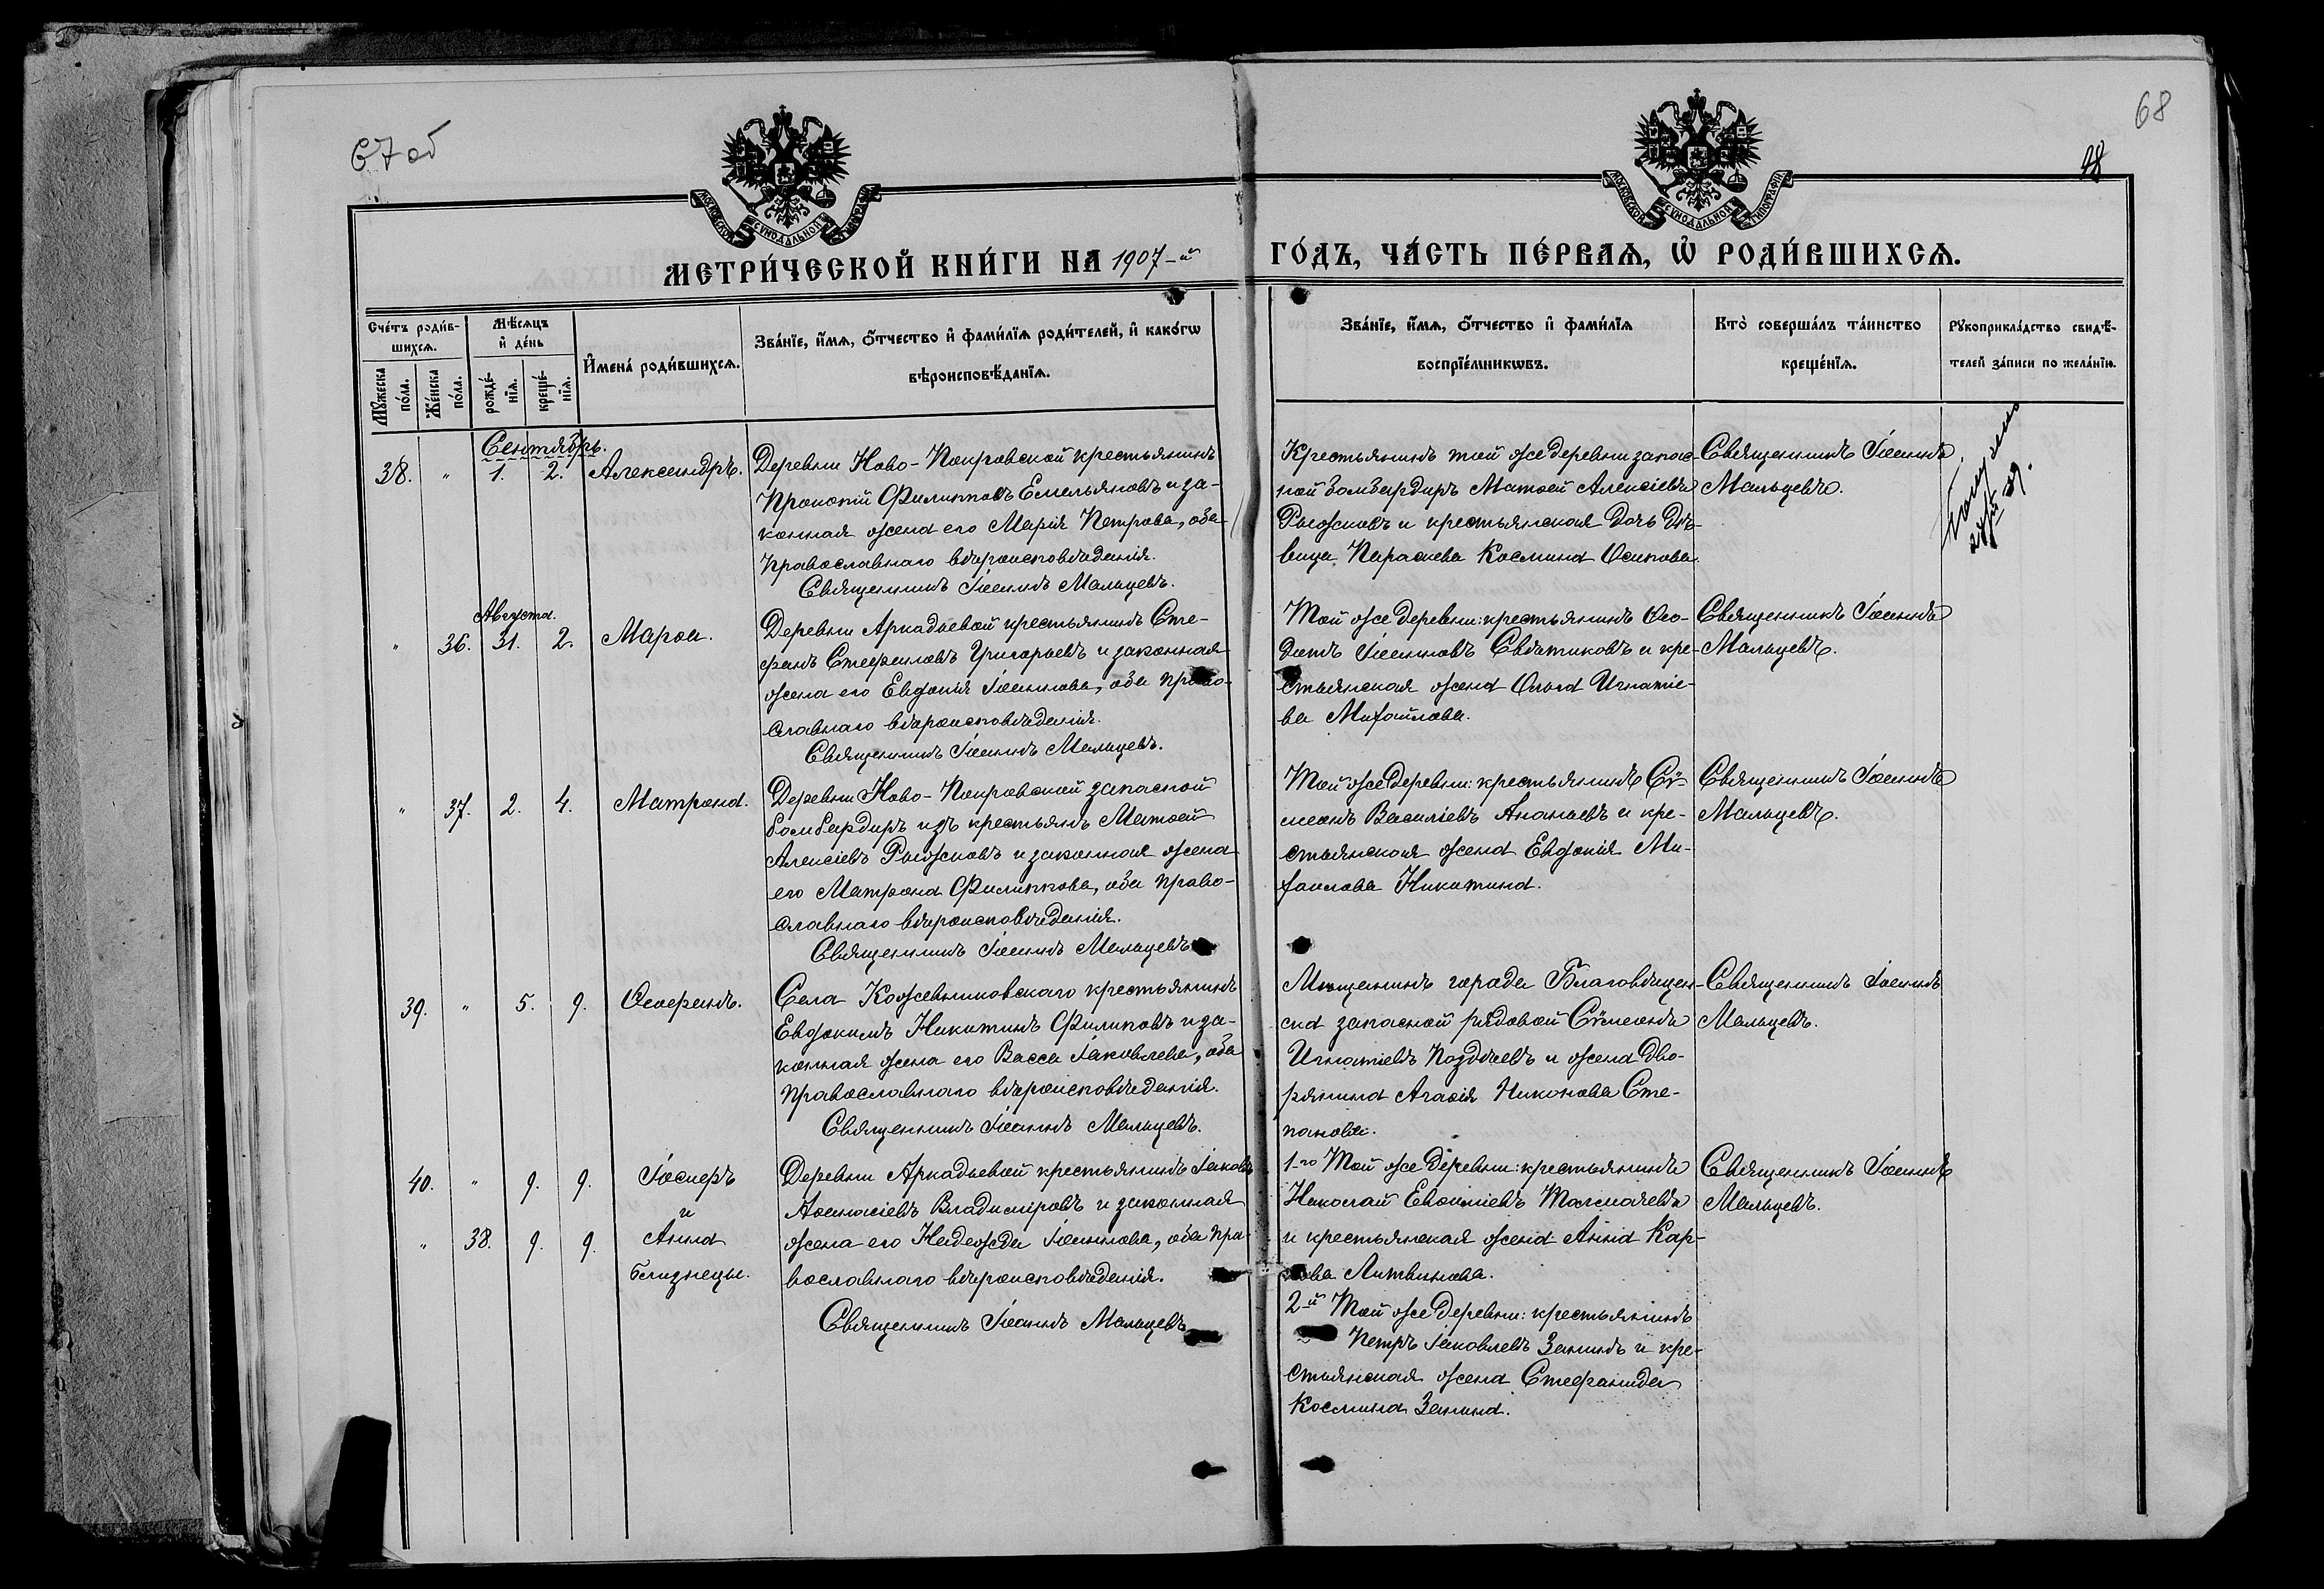 67 об
68
48
МОСКОВСКОЙ СѴНОДАЛЬНОЙ ТИПОГРАФІИ
МОСКОВСКОЙ СѴНОДАЛЬНОЙ ТИПОГРАФІИ
МЕТРИ́ЧЕСКОЙ КНИ́ГИ НА 1907-й ГО́ДЪ, ЧА́СТЬ ПЕ́РВАѦ, Ѡ҆ РОДИ́ВШИХСѦ.
Сче́тъ роди́в-
шихсѧ.
Мꙋжеска по́ла.
Же́нска по́ла.
Мѣ́сѧцъ и҆ де́нь
рожде́-нїѧ.
креще́-нїѧ.
И҆мена̀ роди́вшихсѧ.
Зва́нїе, и҆́мѧ, ѻ҆́тчество и҆ фами́лїѧ роди́телей, и҆ како́гѡ
вѣроисповѣ́данїѧ.
Зва́нїе, и҆́мѧ, ѻ҆́тчество и҆ фами́лїѧ
воспрїе́мникѡвъ.
Кто̀ соверша́лъ та́инство
креще́нїѧ.
Рꙋкоприкла́дство свидѣ́-
телей за́писи по жела́нїю.
Сентябрь.
38. " 1. 2. Александръ.
Деревни Ново-Покровской крестьянинъ
Прокопій Филипповъ Емельяновъ и за-
конная жена его Марія Петрова, оба
православнаго вѣроисповѣданія.
Священникъ Іоаннъ Мальцевъ.
Крестьянинъ той же деревни запас-
ной бомбардиръ Матѳей Алексіевъ
Рыжковъ и крестьянская дочь дѣ-
вица Параскева Космина Осипова.
Священникъ Іоаннъ
Мальцевъ.
Августа.
" 36. 31. 2. Марѳа.
Деревни Аркадьевой крестьянинъ Сте-
фанъ Стефановъ Григорьевъ и законная
жена его Евдокія Іоаннова, оба право-
славнаго вѣроисповѣданія.
Священникъ Іоаннъ Мальцевъ.
Той же деревни: крестьянинъ Ѳео-
дотъ Іоанновъ Святиковъ и кре-
стьянская жена Ольга Игнатіе-
ва Михайлова.
Священникъ Іоаннъ
Мальцевъ.
" 37. 2. 4. Матрона.
Деревни Ново-Покровской запасной
бомбардиръ изъ крестьянъ Матѳей
Алексіевъ Рыжковъ и законная жена
его Матрона Филиппова, оба право-
славнаго вѣроисповѣданія.
Священникъ Іоаннъ Мальцевъ
Той же деревни: крестьянинъ Сѵ-
меонъ Василіевъ Ананьевъ и кре-
стьянская жена Евдокія Ми-
хаилова Никитина.
Священникъ Іоаннъ
Мальцевъ.
39. " 5. 9. Ѳеофанъ.
Села Кожевниковскаго крестьянинъ
Евдокимъ Никитинъ Филиповъ и за-
конная жена его Васса Іаковлева, оба
православнаго вѣроисповѣданія.
Священникъ Іоаннъ Мальцевъ.
Мѣщанинъ города Благовѣщен-
ска запасной рядовой Сѵмеонъ
Игнатіевъ Поздѣевъ и жена дво-
рянина Агаѳія Никонова Сте-
панова.
Священникъ Іоаннъ
Мальцевъ.
40. " 9. 9. Іосифъ
и
" 38. 9. 9. Анна
близнецы.
Деревни Аркадьевой крестьянинъ Іаковъ
Аѳанасіевъ Владиміровъ и законная
жена его Надежда Іоаннова, оба пра-
вославнаго вѣроисповѣданія.
Священникъ Іоаннъ Мальцевъ
1-го Той же деревни: крестьянинъ
Николай Евѳиміевъ Толмачевъ
и крестьянская жена Анна Кар-
пова Литвинова.
2-й Той же деревни: крестьянинъ
Петръ Іаковлевъ Занинъ и кре-
стьянская жена Стефанида
Космина Занина.
Священникъ Іоаннъ
Мальцевъ.